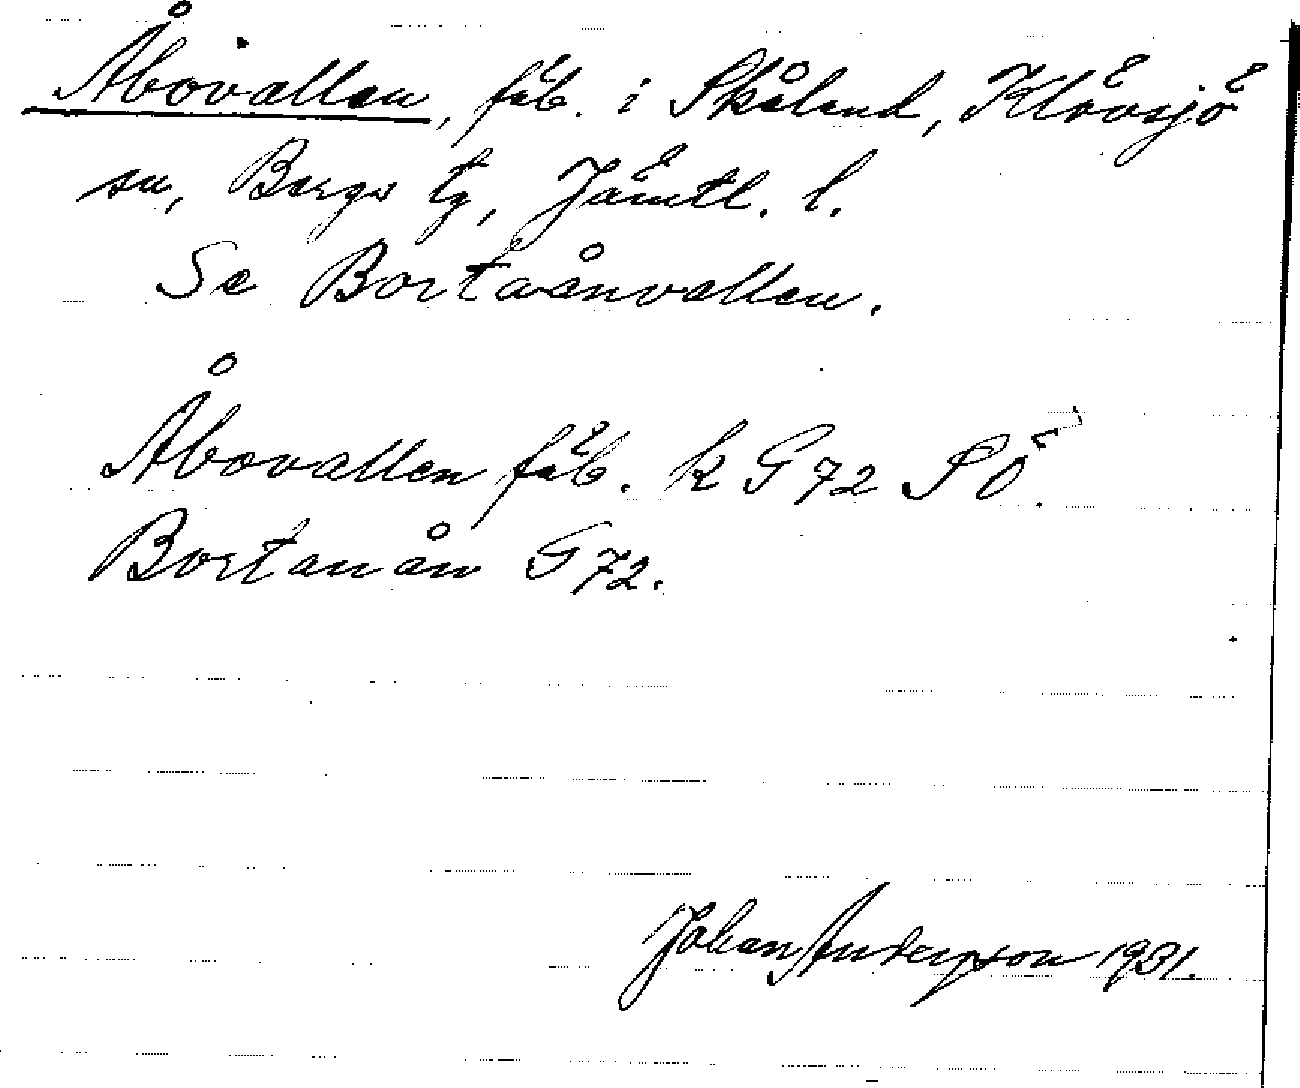 Åbovallen, fäb. i Skålend, Klövsjö
sn, Bergs tg, Jämtl. l.
Se Bortaånvallen.
Åbovallen fäb. k G 72 SÖ.
Bortanån G 72.
Johan Anderson 1931.